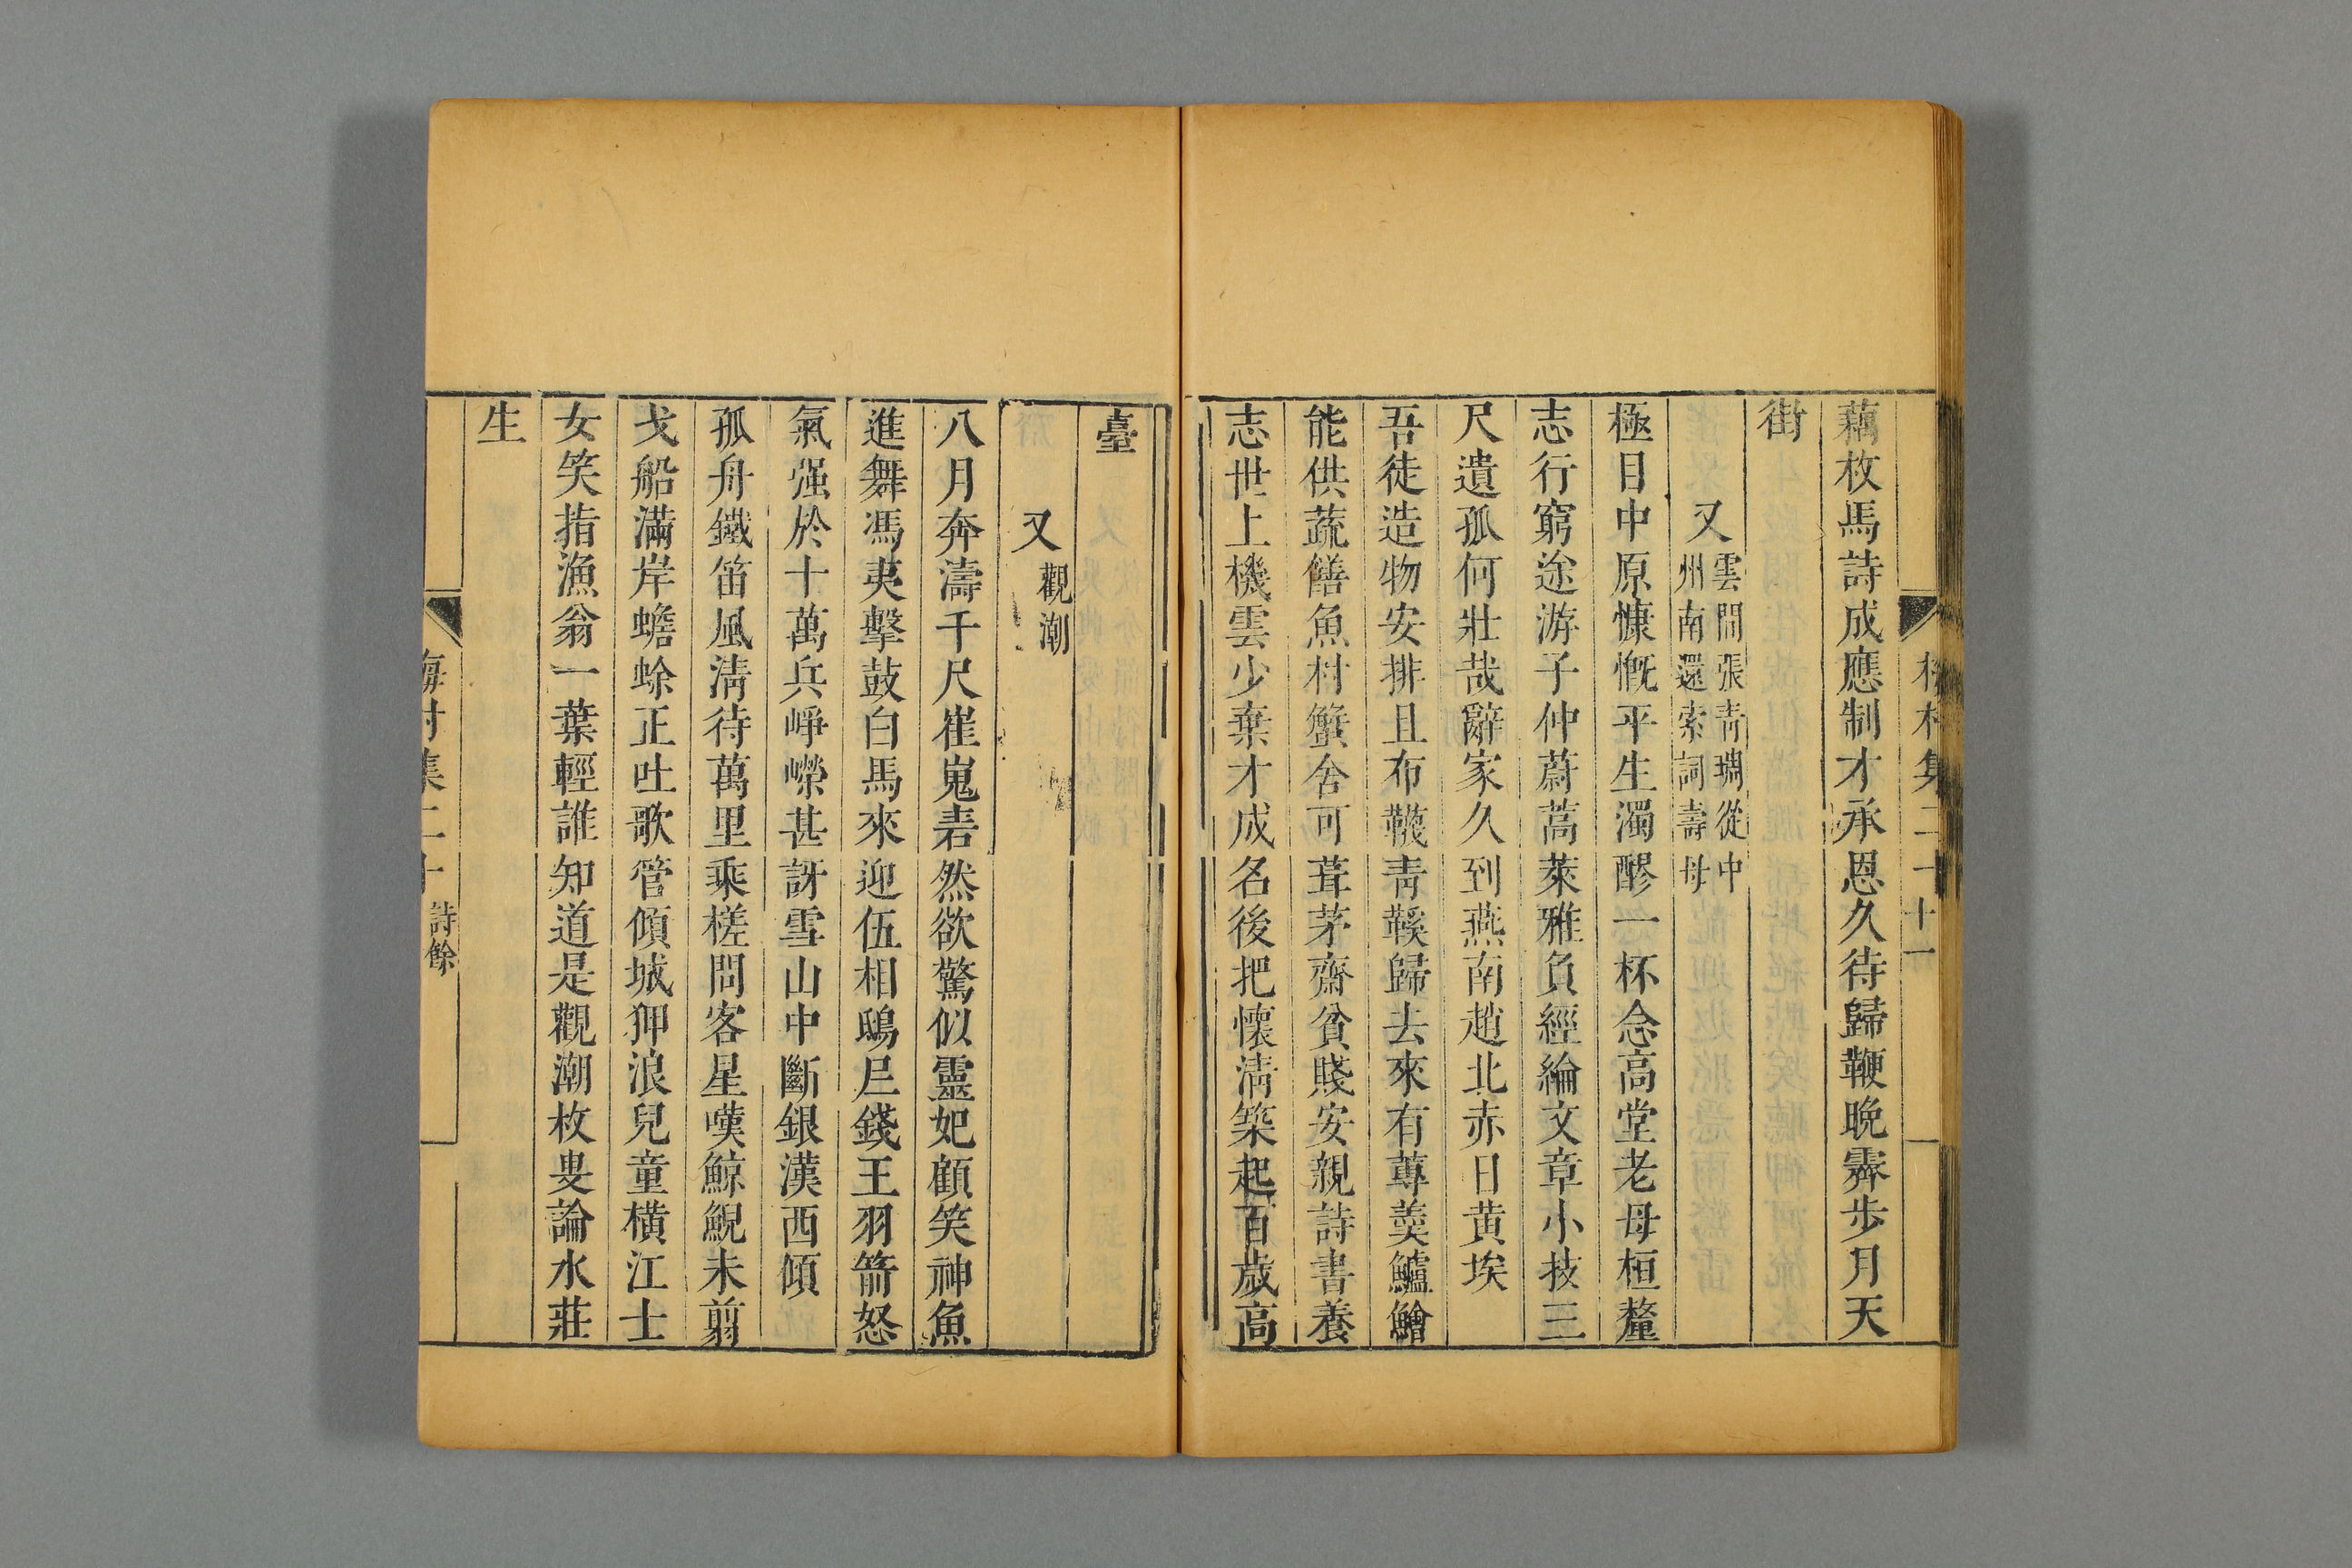 梅村集二十 十一
藕枚馬詩成應制才承恩久待歸鞭晚霽步月天
街
又 雲間張青琱從中州南還索詞壽母
極目中原慷慨平生濁醪一杯念高堂老母桓釐
志行窮途游子仲蔚蒿萊雅負經綸文章小技三
尺遺孤何壯哉辭家久到燕南趙北赤日黄埃
吾徒造物安排且布韈青鞵歸去來有蓴羹鱸鱠
能供蔬饍魚村蟹舍可葺茅齋貧賤安親詩書養
志世上機雲少棄才成名後把懷清築起百歲高
臺
又 觀潮
八月奔濤千尺崔嵬砉然欲驚似靈妃顧笑神魚
進舞馮夷擊鼓白馬來迎伍相鴟𡰥錢王羽箭怒
氣强於十萬兵崢嶸甚訝雪山中斷銀漢西傾
孤舟鐵笛風清待萬里乘槎問客星嘆鯨鯢未翦
戈船滿岸蟾蜍正吐歌管傾城狎浪兒童橫江士
女笑指漁翁一葉輕誰知道是觀潮枚叟論水莊
生
梅村集二十 詩餘